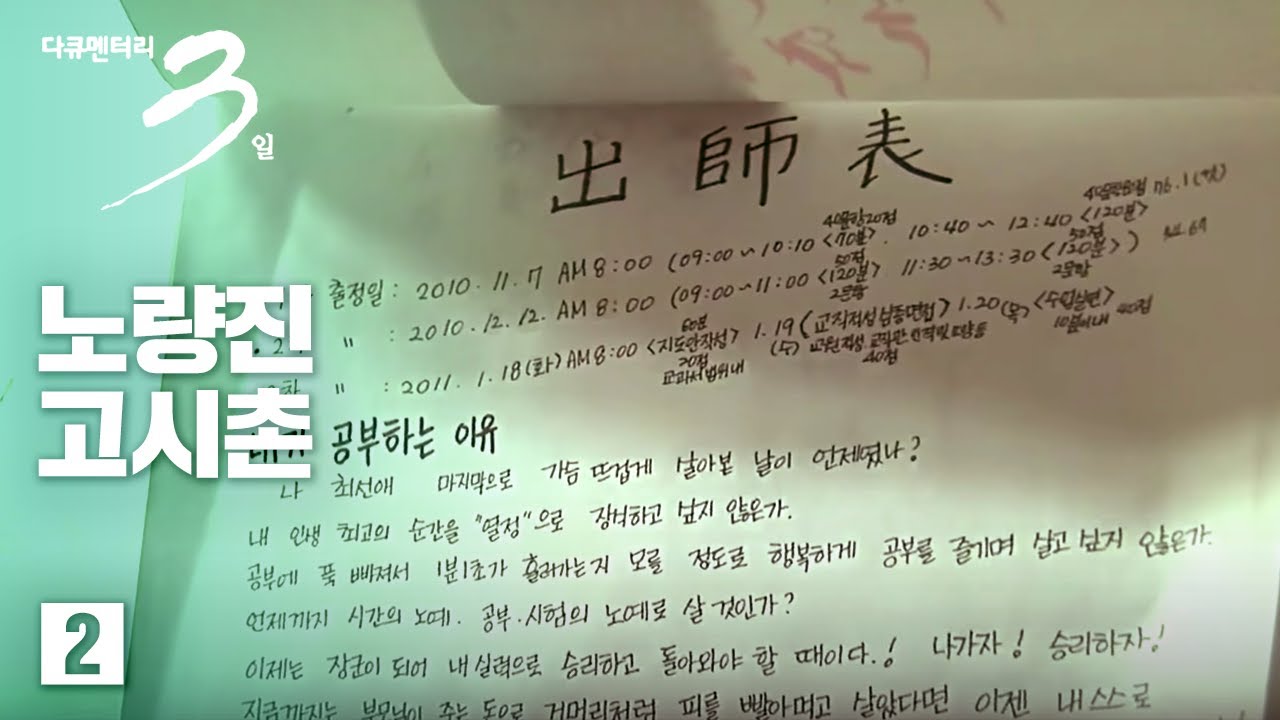 다큐멘터리
3일
노량진
고시촌
2
出師表
출정일 : 2010. 11. 7 AM 8:00 (09:00 ~ 10:10 <70분>. 10:40 ~ 12:40 <120분>
" : 2010. 12. 12. AM 8:00 (09:00 ~ 11:00 <120분> 11:30 ~ 13:30 <120분>)
50점
50점
2문항
2문항
60분
" : 2011. 1. 18 (화) AM 8:00 <지도안작성> 1.19 (교직적성심층면접) 1.20 (목) <수업실연>
20점
교과서 범위내
(수)
40점
10분이내 40점
공부하는 이유
나 최선애 마지막으로 가슴 뜨겁게 살아본 날이 언제였나?
내 인생 최고의 순간을 "열정"으로 장식하고 싶지 않은가.
공부에 푹 빠져서 1분1초가 흘러가는지 모를 정도로 행복하게 공부를 즐기며 살고 싶지 않은가.
언제까지 시간의 노예. 공부·시험의 노예로 살 것인가?
이제는 장군이 되어 내 실력으로 승리하고 돌아와야 할 때이다.! 나가자! 승리하자!
지금까지는 부모님이 주는 돈으로 거머리처럼 피를 빨아먹고 살았다면 이젠 내 스스로